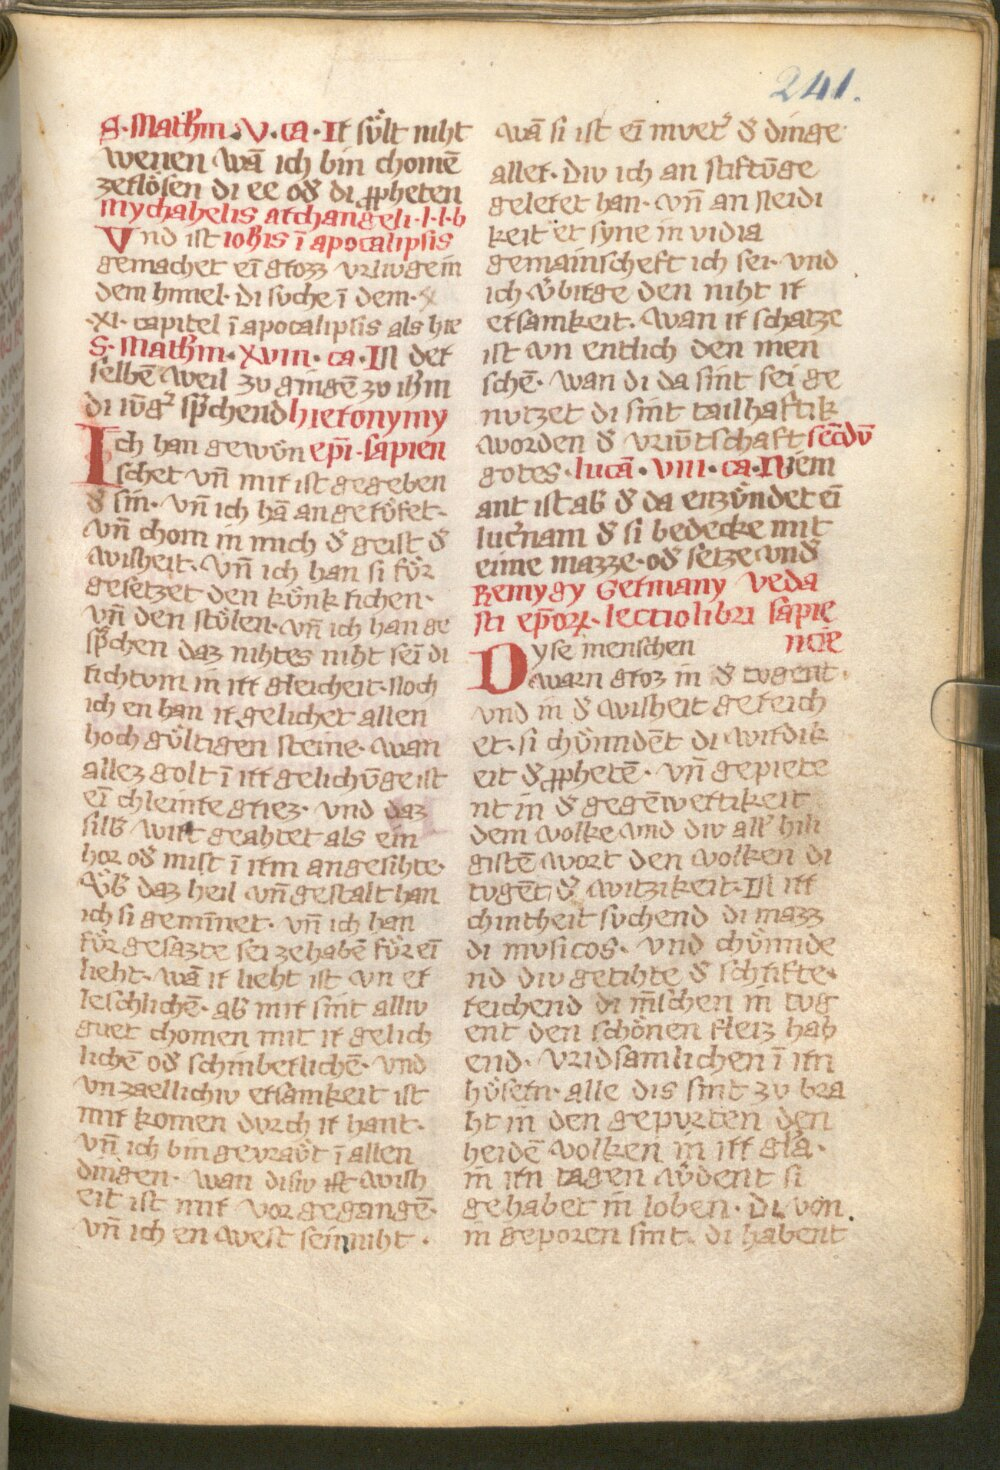 241.
S. Math'm. V. ca. Ir sv̊lt niht
wenen wā ich bin chomē
zerlo̊sen di ee od' di ꝓpheten
Mychahelis archangeli. l. l. b
Vnd ist ioh'is ī apocalipsis
gemachet eī grozz vrlivge in
dem himel. di svche ī dem.
.XI. capitel ī apocalipsis als hie
S. Math'm. XVIII. ca. IN der
selbē weil zv gingē zv ih'm
di iv̄g' sp'chend hieronymy
Ich han gewv̊n ep̄i. sapien
schet vn̄ mir ist gegeben
d' sin. vn̄ ich hā angerv̊fet.
vn̄ chom in mich d' geist d'
wisheit. vn̄ ich han si fv̊r
gesetzet den kv̊nk richen.
vn̄ den stv̊len. vn̄ ich han ge
sp'chen daz nihtes niht sei di
richtvm in irr gleicheit. Noch
ich en han ir gelichet allen
hoch gv̊ltigen steine. wan
allez golt ī irr gelichv̄ge ist
eī chleinre griez. vnd daz
silb' wirt geahtet als ein
hor od' mist ī irm angesihte.
V̊b' daz heil vn̄ gestalt han
ich si gemīnet. vn̄ ich han
fv̊r gesazte sei ze habē fv̊r eī
lieht. wā ir lieht ist vn er
leschlichē. ab' mir sint alliv
gvet chomen mit ir gelich
lichē od' schinberlichē. vnd
vnzaellichiv ersamkeit ist
mir komen dvrch ir hant.
vn̄ ich bin gevrav̊t ī allen
dingen. wan disiv ist wish
eit ist mir vor gegangē.
vn̄ ich en west sein niht.
wā si ist eī mvet' d' dinge
aller. div ich an stiftv̄ge
geleret han. vn̄ an Neidi
keit et syne in vidia
gemainscheft ich sei. vnd
ich v̊birge den niht ir
ersamkeit. wan ir schatze
ist vn entlich den men
schē. wan di da sint sei ge
nvtzet di sint tailhaftik
worden d' vriv̄tschaft secd̄v̄
gotes. lucā. VIII. ca. Niem
ant ist ab' d' da enzv̊ndet eī
luc'nam d' si bedecke mit
eime mazze. od' setze vnd'
Remygy Germany veda
sti ep̄orꝝ. lectio libri sapie
ncie
Dyse menschen
warn groz in d' tvgent.
vnd in d' wisheit gereich
et. si chv̊nndēt di wirdik
eit d' ꝓphetē. vn̄ gepiete
nt in d' gegēwertikeit
dem volke vnd div all' hili
gistē wort den volken di
tvgēt d' witzikeit. IN irr
chintheit svchend di mazz
di mvsicos. vnd chv̊nnde
nd div getihte d' schrifte.
reichend di m̄schen in tvg
ent den scho̊nen fleiz hab
end. vridsamlichen ī irn
hv̊sern. alle dis sint zv bra
ht in den gepvrten den
heidē volken in irr gla.
in irn tagen wv̊dent si
gehabet in loben. di von
in geporen sint. di habent